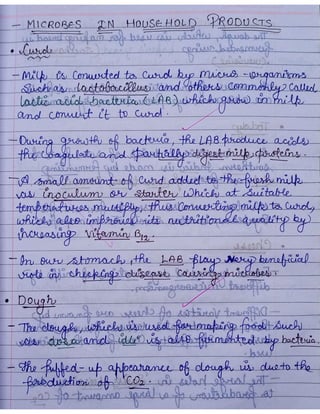 - MICROBES IN HOUSEHOLD PRODUCTS
• Curd
- Milk is converted to curd by micro-organisms
such as lactobacillus and others commonly called
lactic acid bacteria (LAB) which grow in milk
and convert it to curd.
- During growth of bacteria, the LAB produce acids
the coagulate and partially digest milk proteins.
- A small amount of curd added to the fresh milk
as inoculum or starter which at suitable
temperatures multiply, thus converting milk to curd,
which also improves its nutritional quality by
increasing vitamin B12.
- In our stomach, the LAB play very beneficial
role in checking disease causing microbes.
• Dough
- The dough, which is used for making food such
as dosa and idli is also fermented by bacteria.
- The puffed-up appearance of dough is due to the
production of CO2.